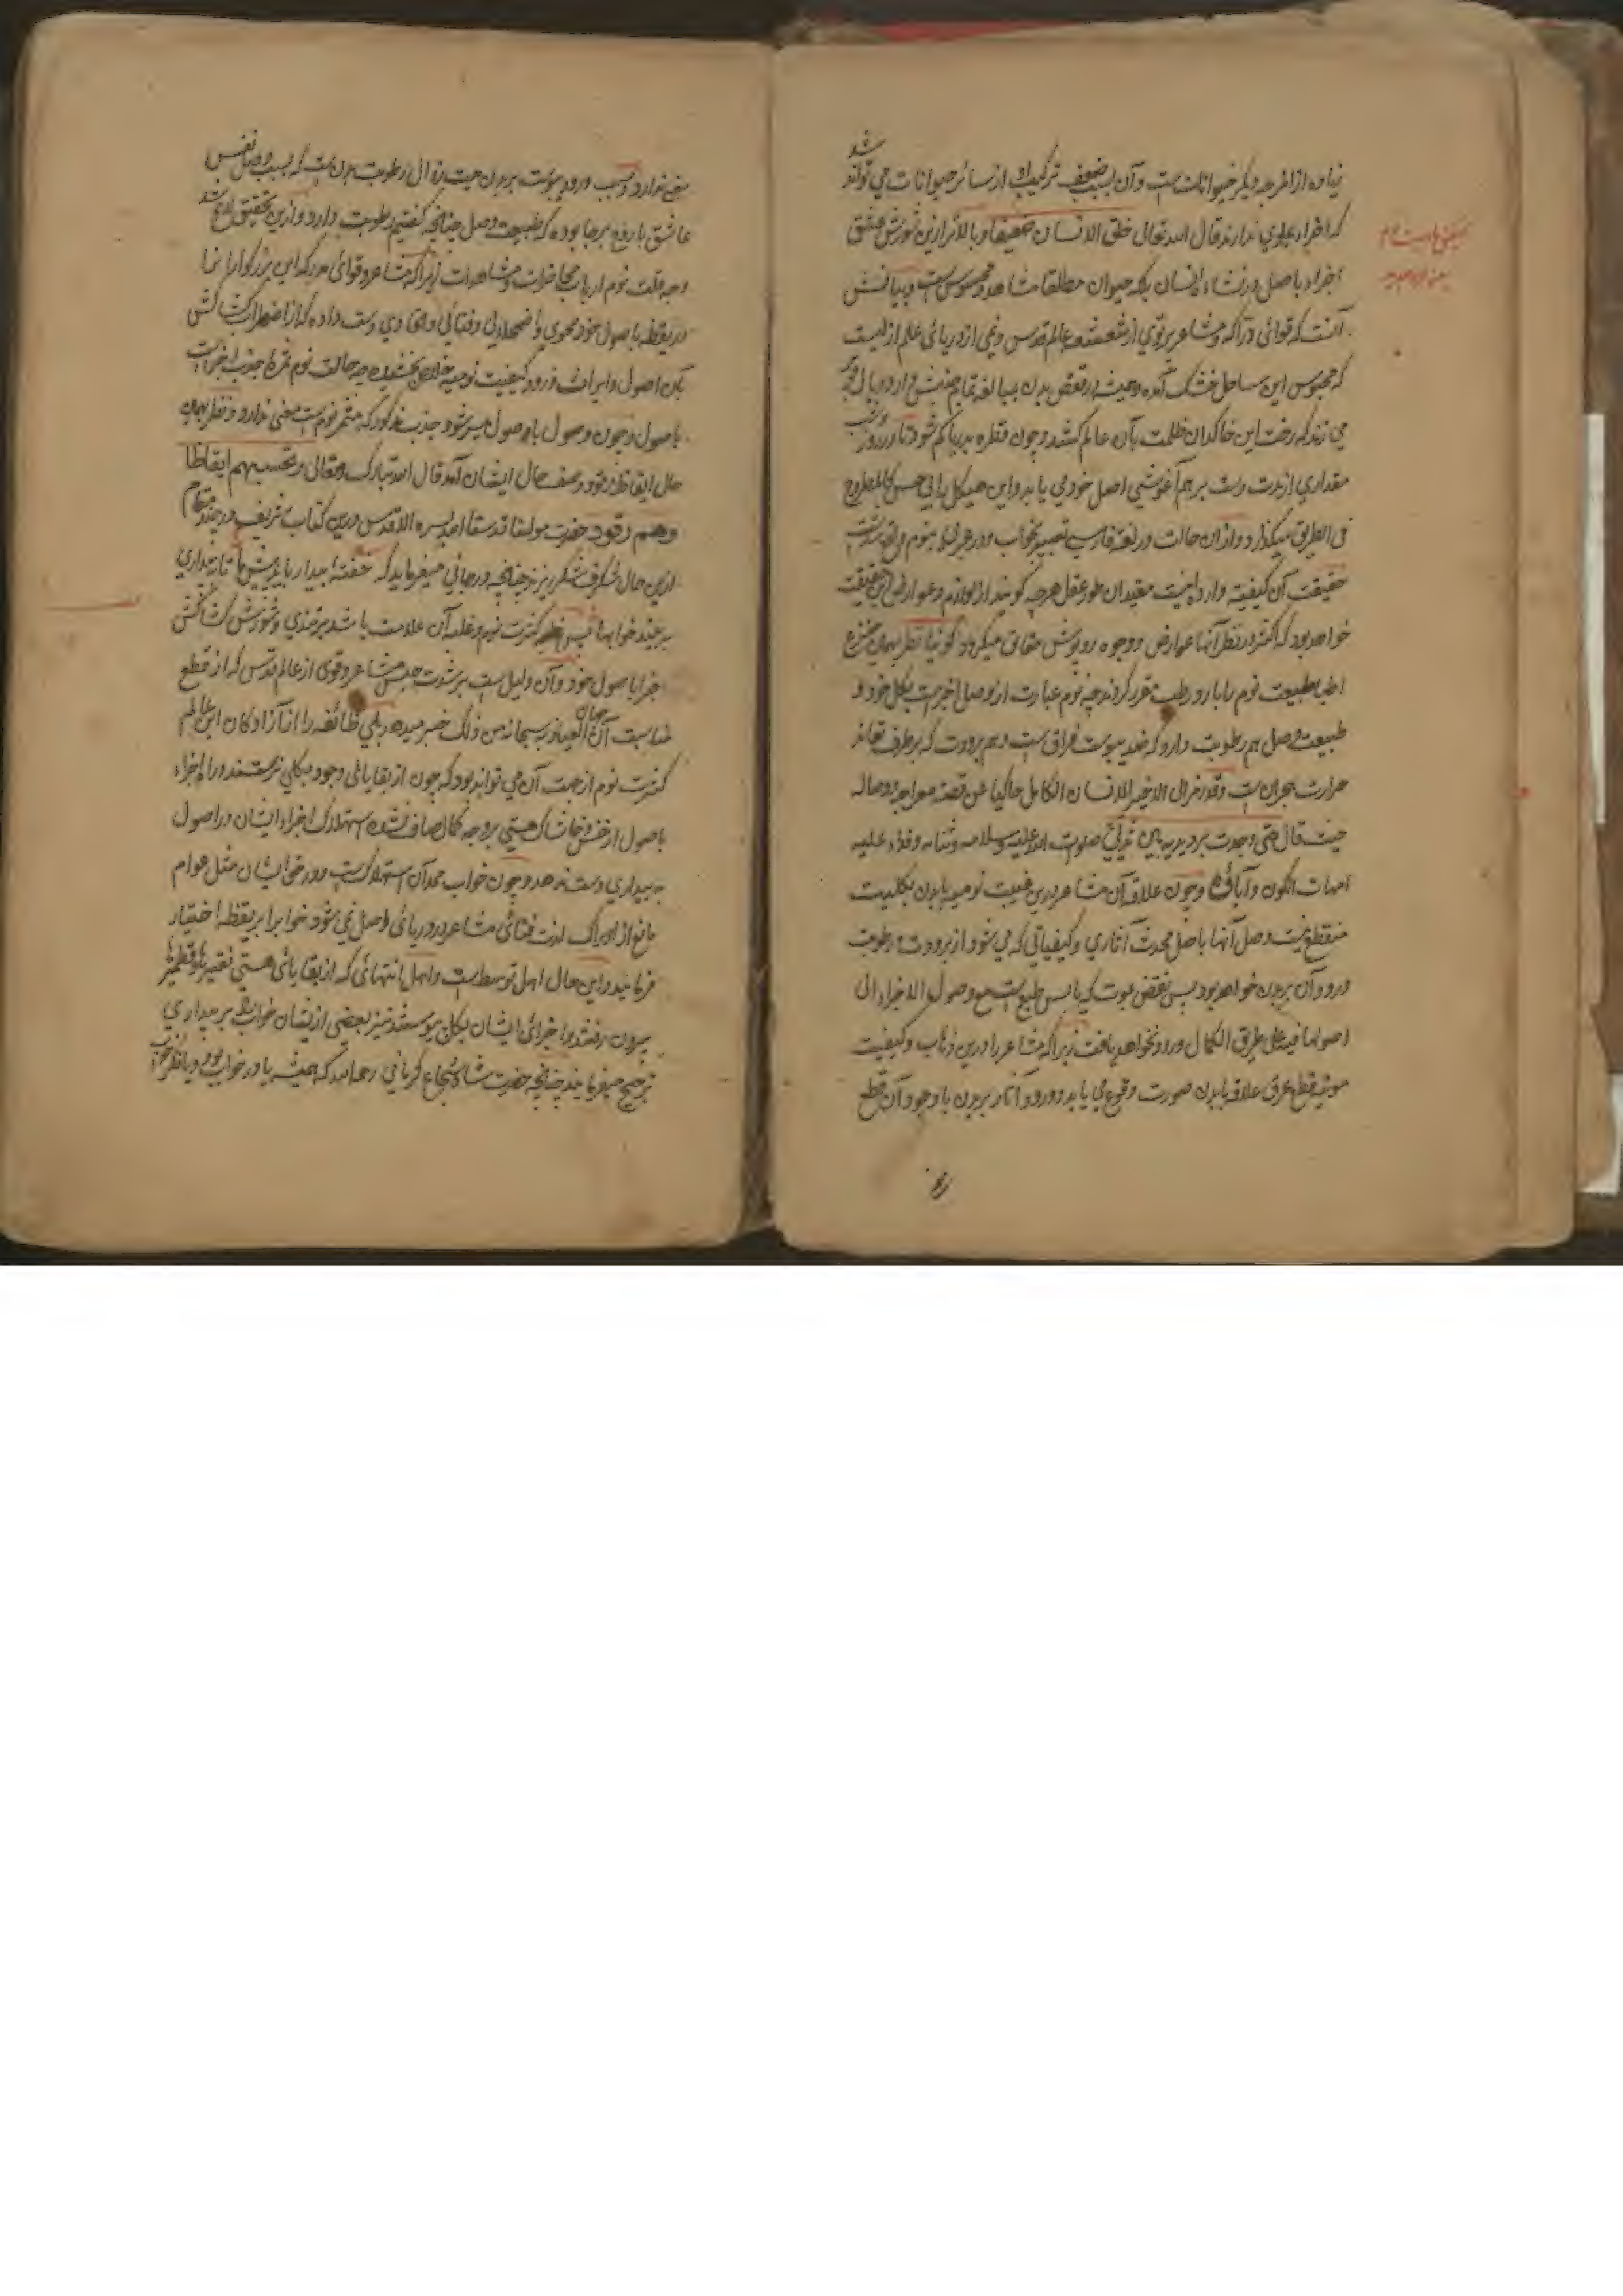 زیاده از امزجه دیگر حیوانات است و آن بسبب ضعف ترکیب او از سائر حیوانات می تواند شد
که اجزاء علوی ندارند قال الله تعالی خلق الانسان ضعیفا و بالاتر ازین شورش عشق
اجزاء باصل در نشاء انسان بلکه حیوان مطلقا مشاهد و محسوس است و بیانش
آنست که قوای دراکه و مشاعر پرتوی از شعشعه عالم قدس و نمی از دریای علم ازلیست
که محبوس این ساحل خشک آمده و همیشه در قفص بدن بمبالغه تمام جنبش دارد و بال و پر
می زند که رخت این خاکدان ظلمت بآن عالم کشد و چون قطره بدریا کم شود تا در روز و شب
مقداری از مدت دست بر هم آغوشی اصل خود می یابد و این هیکل را بی حس کالمطروح
فی الطریق میگذارد و ازان حالت در لغة فارسی تعبیر بخواب و در عربی بنوم واقع شدست
حقیقت آن کیفیت وارد اینست مقیدان طور عقل هرچه گویند از لوازم و عوارض این حقیقت
خواهد بود که اکثر در نظر آنها عوارض و وجوه روپوش حقائق میگردد گویا نظر بهمین معنی
اطبا طبیعت نوم را بارد رطب مقرر کردند چه نوم عبارت از وصل اجزاست بکل خود و
طبیعت وصل هم رطوبت دارد که ضد یبوست فراق است و هم برودت که بر طرف نماند
حرارت هجران است وقد رمز الی الاخیر الانسان الکامل حاکیا عن قصة معراجه و وصاله
حیث قال حتی وجدت برد یدیه بین ثدیی صلوات الله علیه و سلامه و ثناءه و فداء علیه
امهات الکون و آباؤه و چون علاقه آن مشاعر درین غیبت نومیه بابدن بکلیت
منقطع نیست وصل آنها باصل محدث آثاری و کیفیاتی که می شود از برودت و رطوبت
ورود آن بر بدن خواهد بود پس نقض بموت که یابس طبع است مع وصول الاجزاء الی
اصولها فیه علی طریق الکمال ورود نخواهد یافت زیرا که مشاعر را درین ذهاب و کیفیت
موتیه قطع عرق علاقه بابدن صورت وقوع می یابد و ورود آثار بر بدن با وجود آن قطع
معنی ندارد و سبب ورود یبوست بر بدن میت زوال رطوبت بدن است که بسبب وصل نفس
عاشق با روح برجا بوده که طبیعت وصل چنانچه گفتیم رطوبت دارد و ازین تحقیق لائح شد
وجه قلت نوم ارباب محاضرات و مشاهدات زیرا که مشاعر و قوای مدرکه این بزرگواران را
در یقظه باصول خود محوی و اضمحلالی و فنائی و اتحادی دست داده که از اضطراب کشاکش
بآن اصول و ایراث ورود کیفیت نومیه خلاص بخشیده چه حالت نوم ثمرة جذب اجزاست
باصول و چون وصول باصول میسر شود جذب مذکور که مثمر نوم است معنی ندارد و نظر بهمین
حال ایقاظ رقود وصف حال ایشان آمد قال الله تبارک و تعالی و تحسبهم ایقاظا
وهم رقود حضرت مولفنا قدسنا الله بسره الاقدس درین کتاب شریف در چند مقام
ازین حال شکرف شکر ریزند چنانچه در جائی میفرماید که خفته بیدار باید پیش ما تا به بیداری
به بیند خوابها پس کثرت نوم و غلبه آن علامت باشد بر تندی و شورش کشاکش
اجزا باصول خود و آن دلیل است بر شدت حبس مشاعر و قوی از عالم قدس که از قطع
مناسبت آن جهان العیاذ به سبحانه من ذلک خبر میدهد بلی طائفه را از آزادگان این عالم
کثرت نوم از جهت آن می تواند بود که چون از بقایای وجود بکلی نرستند و راه اجزاء
باصول از خس و خاشاک هستی بر وجه کمال صاف نشده استهلاک اجزاء ایشان در اصول
به بیداری دست ندهد و چون خواب ممد آن استهلاک است و در خواب ایشان مثل عوام
مانع از ادراک لذت فنای مشاعر در دریای اصل نمی شود خواب را بر یقظه اختیار
فرمایند و این حال اهل توسط است و اهل انتهائی که از بقایای هستی نقیرها و قطمیرها
بیرون رفتند و اجزای ایشان بکل پیوستند نیز بعضی ازیشان خواب را بر بیداری
ترجیح میفرمایند چنانچه حضرت شاه شجاع کرمانی رحمه الله که همیشه یا در خواب بود و یا در طلب خواب